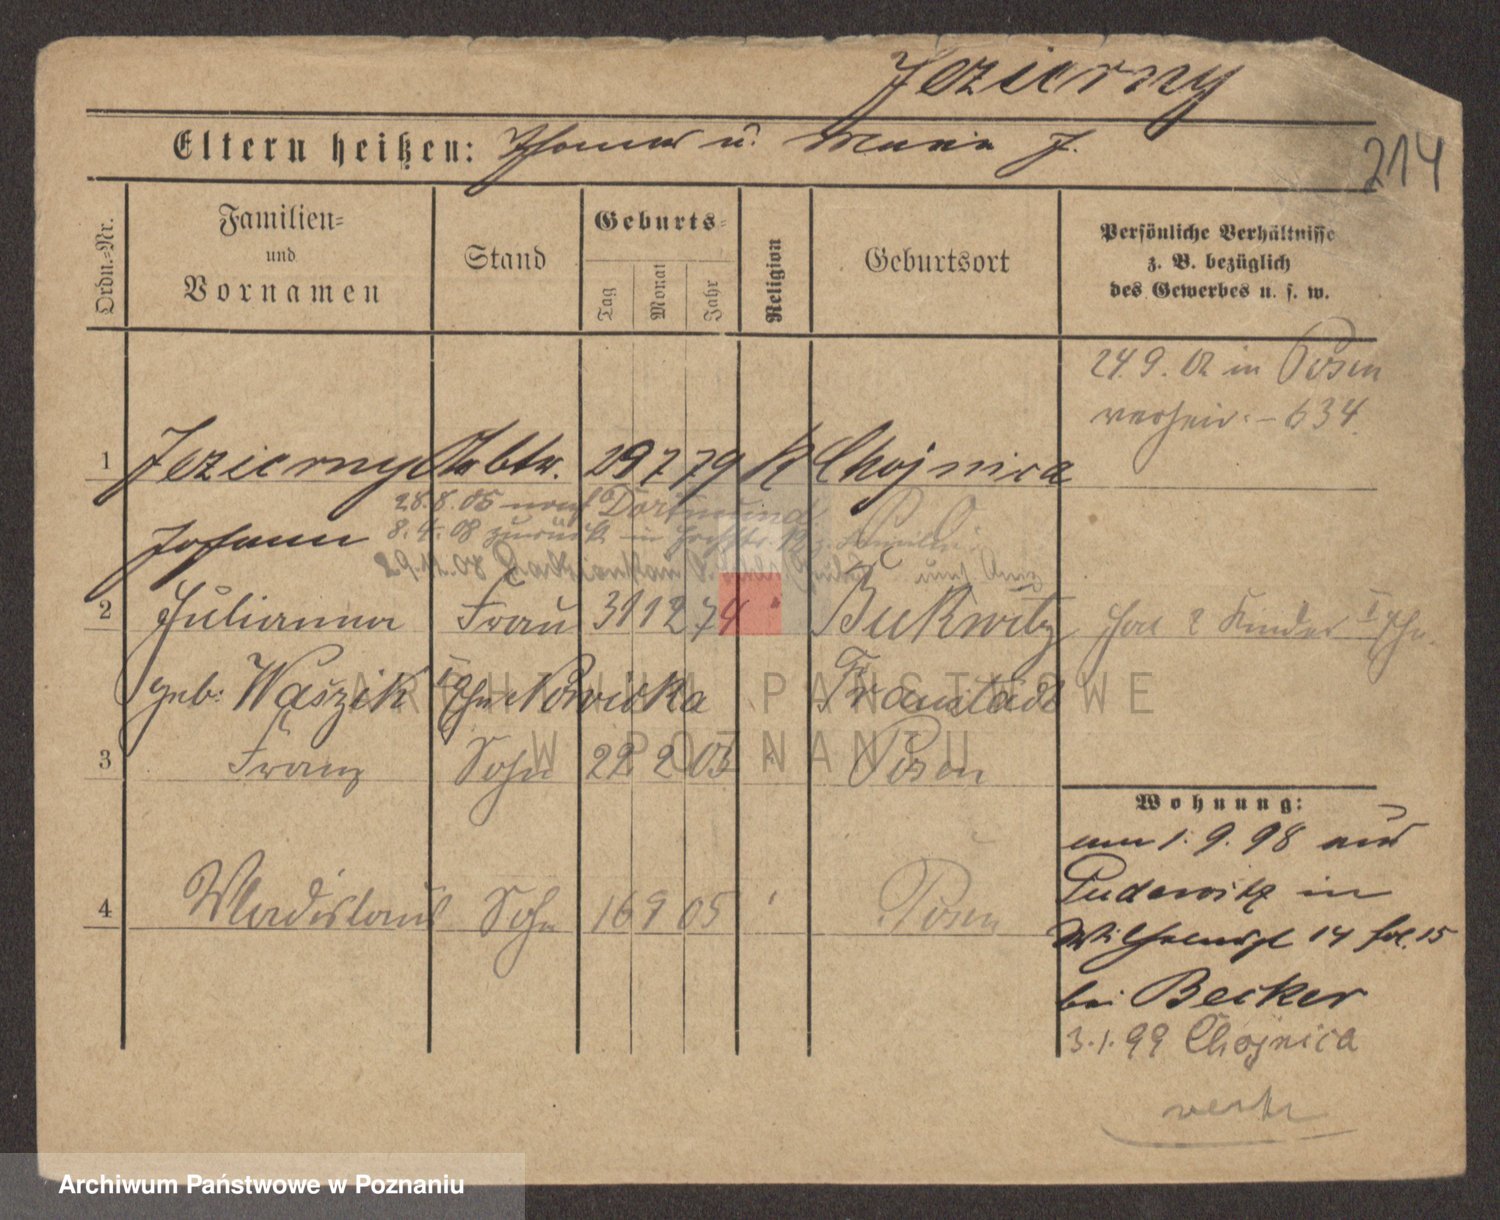 Jezierny
214
Eltern heißen: Thomas u. Maria J.
Ordn.=Nr.
Familien=
und
Vornamen
Stand
Geburts=
Tag
Monat
Jahr
Religion
Geburtsort
Persönliche Verhältnisse
z. B. bezüglich
des Gewerbes u. s. w.
24. 9. 02 in Posen
verheir. - 634
1 Jezierny Arbtr. 29 7 79 K Chojnica
28.8.05 nach Dortmund
Johann 8.4.08 zurück in
2 Julianna Frau 31 12 74 " Bukwitz
Hat 2 Kinder I Ehe.
geb: Waszik I Ehe Nowicka Fraustadt
3 Franz Sohn 22 2 03 " Posen
4 Wladislaus Sohn 16 9 05 " Posen
Wohnung:
am 1. 9. 98 aus
Pudewitz in
Wilhelmspl 14 15
bei Becker
3. 1. 99 Chojnica
ARCHIWUM PAŃSTWOWE
W POZNANIU
Archiwum Państwowe w Poznaniu